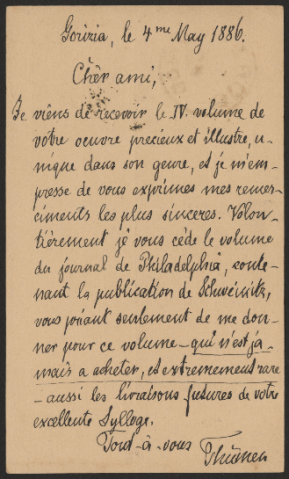 Gorizia, le 4me May 1886.
Chèr ami,
Je viens de recevoir le IV. volume de
votre oeuvre precieux et illustre, u-
nique dans son genre, et je m'em-
presse de vous exprimer mes remer-
ciments les plus sinceres. Volon-
tièrement je vous cède le volume
du journal de Philadelphia, conte-
nant la publication de Schweinitz,
vous priant seulement de me don-
ner pour ce volume - qui n'est ja-
mais a acheter, et extremement rare
- aussi les livraisons futures de votre
excellente Sylloge.
Tout-à-vous Thümen